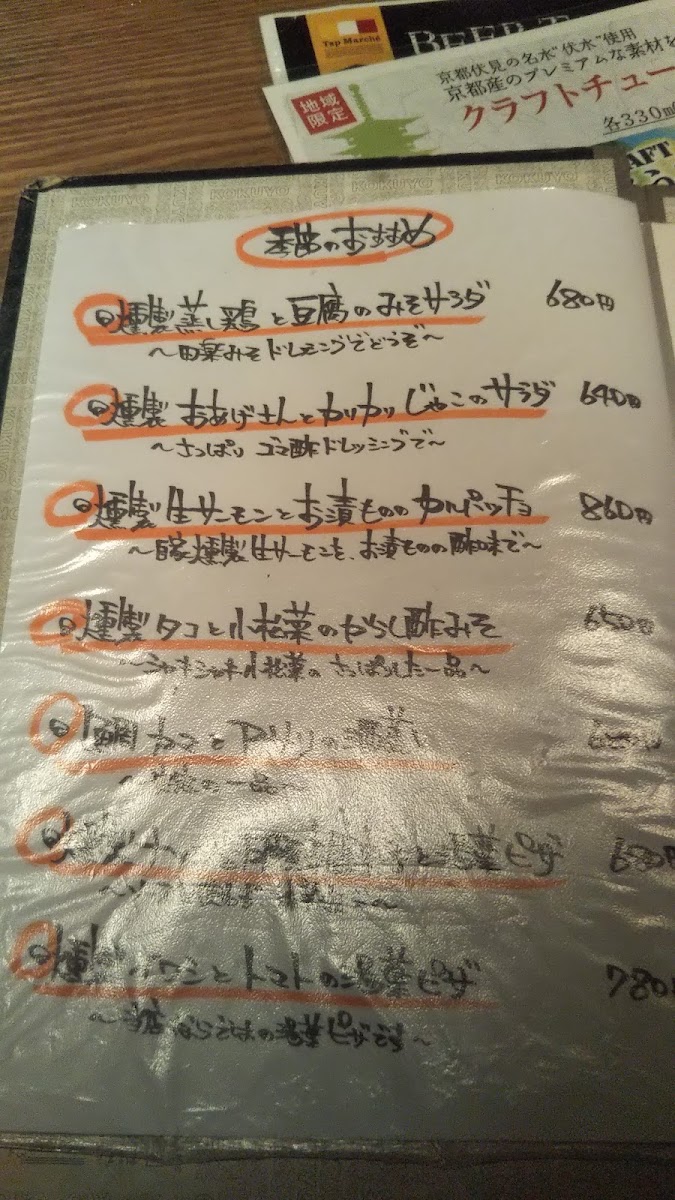 Tap Marché
BEER T
京都伏見の名水"伏水"使用
京都産のプレミアムな素材を
地域
限定
クラフトチュー
各330ml
AFT
KOKUYO KOKUYO KOKUYO KOKUYO
季節のおすすめ
燻製蒸し鶏と豆腐のみそサラダ 680円
〜田楽みそドレッシングでどうぞ〜
燻製おあげさんとカリカリじゃこのサラダ 640円
〜さっぱりゴマ酢ドレッシングで〜
燻製生サーモンとお漬もののカルパッチョ 860円
〜自家燻製生サーモンを、お漬ものの酸味で〜
燻製タコと小松菜のからし酢みそ 650円
〜シャキシャキ小松菜のさっぱりした一品〜
鯛カマとアサリの酒蒸し
の一品〜
と湯葉ピザ 680円
燻製イワシとトマトの湯葉ピザ 780円
〜当店ならではの湯葉ピザです〜